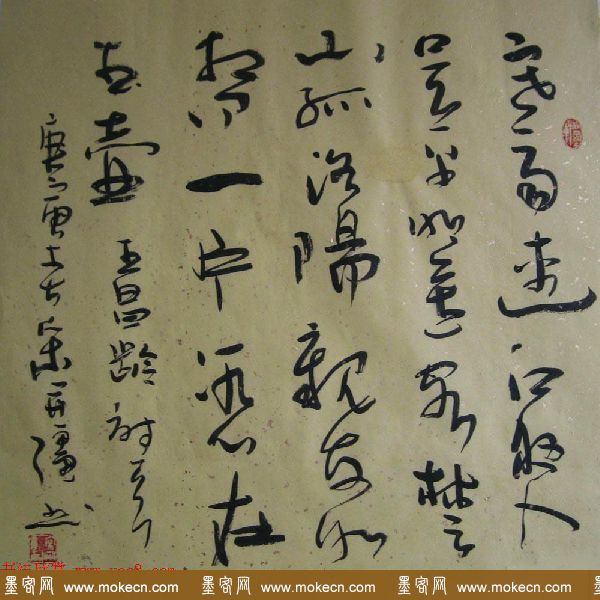 寒雨連江夜入
吴平明送客楚
山孤洛陽親友如
相問一片冰心在
玉壺 王昌齡詩一首
庚寅 书
墨客网 www.mokecn.com 墨客网 www.mokecn.com 墨客网 www.mokecn.com